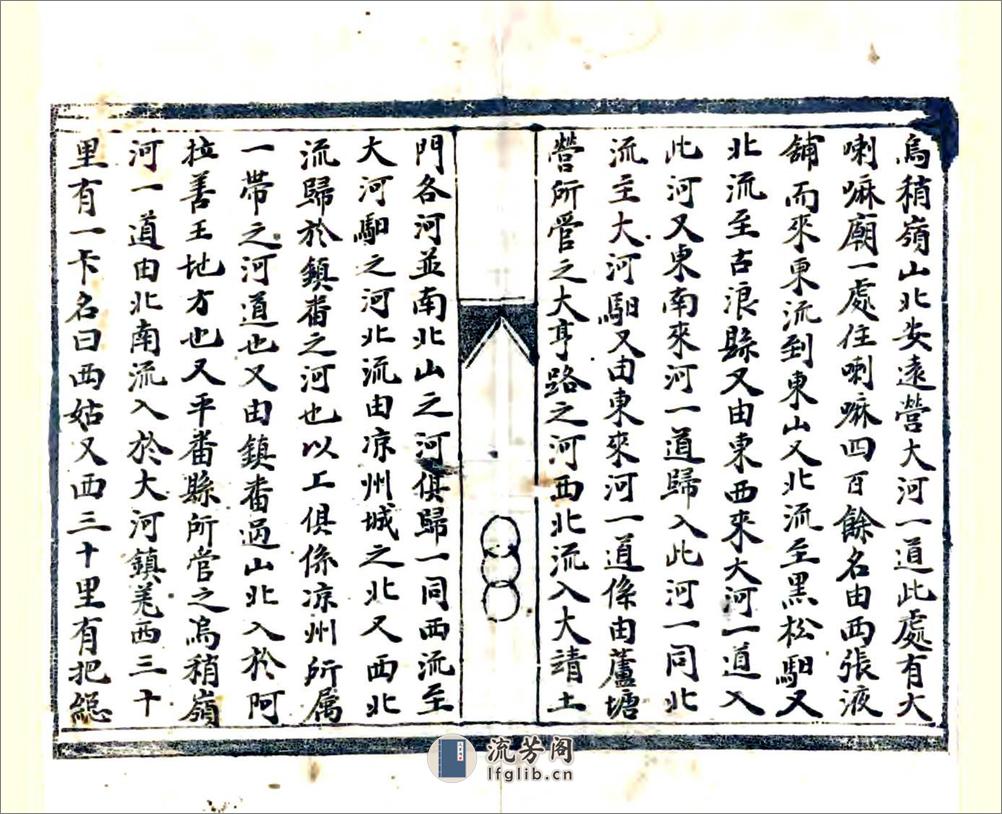 烏稍嶺山北安遠營大河一道此處有大
喇嘛廟一處住喇嘛四百餘名由西張液
舖而來東流到東山又北流至黑松馹又
北流至古浪縣又由東西來大河一道入
此河又東南來河一道歸入此河一同北
流至大河馹又由東來河一道係由蘆塘
營所管之大亨路之河西北流入大靖土
門各河並南北山之河俱歸一同西流至
大河馹之河北流由凉州城之北又西北
流歸於鎮番之河也以工俱係凉州所属
一帶之河道也又由鎮番过山北入於阿
拉善王地方也又平番縣所管之烏稍嶺
河一道由北南流入於大河鎮羌西三十
里有一卡名曰西姑又西三十里有把總
流芳阁
lfglib.cn